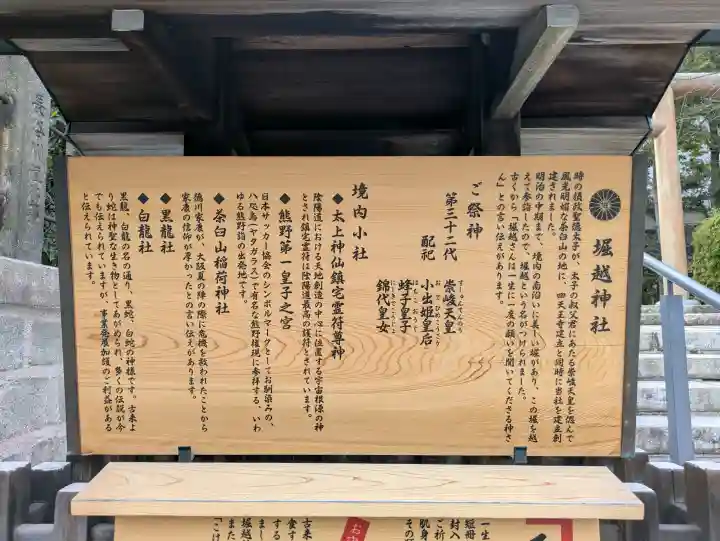 堀越神社
時の摂政聖徳太子が、太子の叔父君にあたる崇峻天皇を偲んで
風光明媚な茶臼山の地に、四天王寺建立と同時に当社を建立創
建されました。
明治の中期まで、境内の南沿いに美しい堀があり、この堀を越
えて参詣したので、堀越という名がつけられました。
古くから「堀越さんは一生に一度の願いを聞いてくださる神さ
ん」との言い伝えがあります。
ご祭神
第三十二代 崇峻天皇
配祀 小出姫皇后
蜂子皇子
錦代皇女
境内小社
◆太上神仙鎮宅霊符尊神
陰陽道における天地創造の中心に位置する宇宙根源の神
とされ鎮宅霊符は陰陽道最高の護符とされています。
◆熊野第一皇子之宮
日本サッカー協会のシンボルマークとしてお馴染みの、
八咫烏(ヤタガラス)で有名な熊野権現に参拝する、いわ
ゆる熊野詣の出発地です。
◆茶臼山稲荷神社
徳川家康が、大阪夏の陣の際に危機を救われたことから
家康の信仰が厚かったとの言い伝えがあります。
◆黒龍社
◆白龍社
黒龍、白龍の名の通り、黒蛇、白蛇の神様です。古来よ
り蛇は神聖な生き物としてあがめられ、多くの伝説が今
でも伝えられていますが、事業発展加護のご利益がある
と伝えられています。